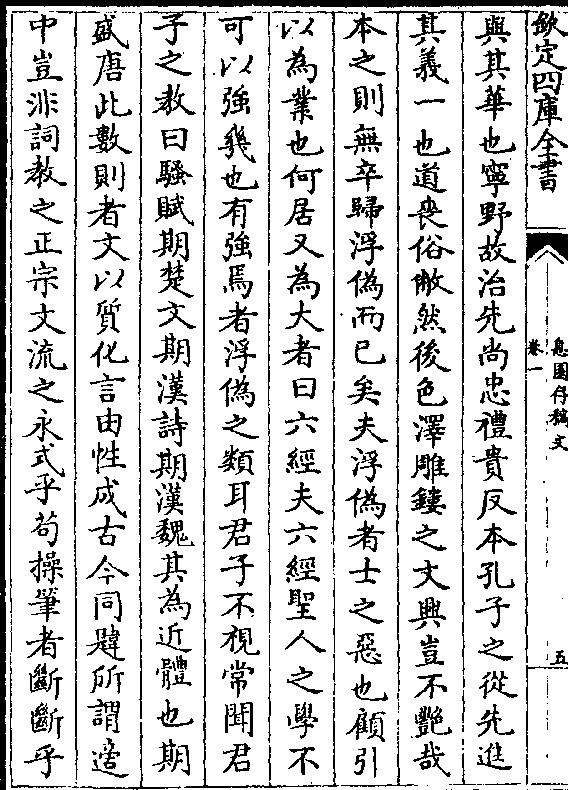 欽定四庫全書
息園存稿文
卷一
五
與其華也寧野故治先尚忠禮貴反本孔子之從先進
其義一也道喪俗敝然後色澤雕鏤之文興豈不艷哉
本之則無卒歸浮偽而已矣夫浮偽者士之惡也顧引
以為業也何居又為大者曰六經夫六經聖人之學不
可以強幾也有強焉者浮偽之類耳君子不視常聞君
子之教曰騷賦期楚文期漢詩期漢魏其為近體也期
盛唐此數則者文以質化言由性成古今同韙所謂
中豈非詞教之正宗文流之永式乎茍操筆者斷斷乎